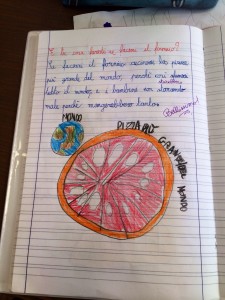 E tu cosa faresti se facessi il fornaio?
Se facessi il fornaio cucinerei la pizza
più grande del mondo, perché così sfamerei
tutto il mondo, e i bambini non starebbero
male perché mangerebbero tanto.
Bellissimo!
MONDO
PIZZA PIÙ
GRANDE DEL MONDO